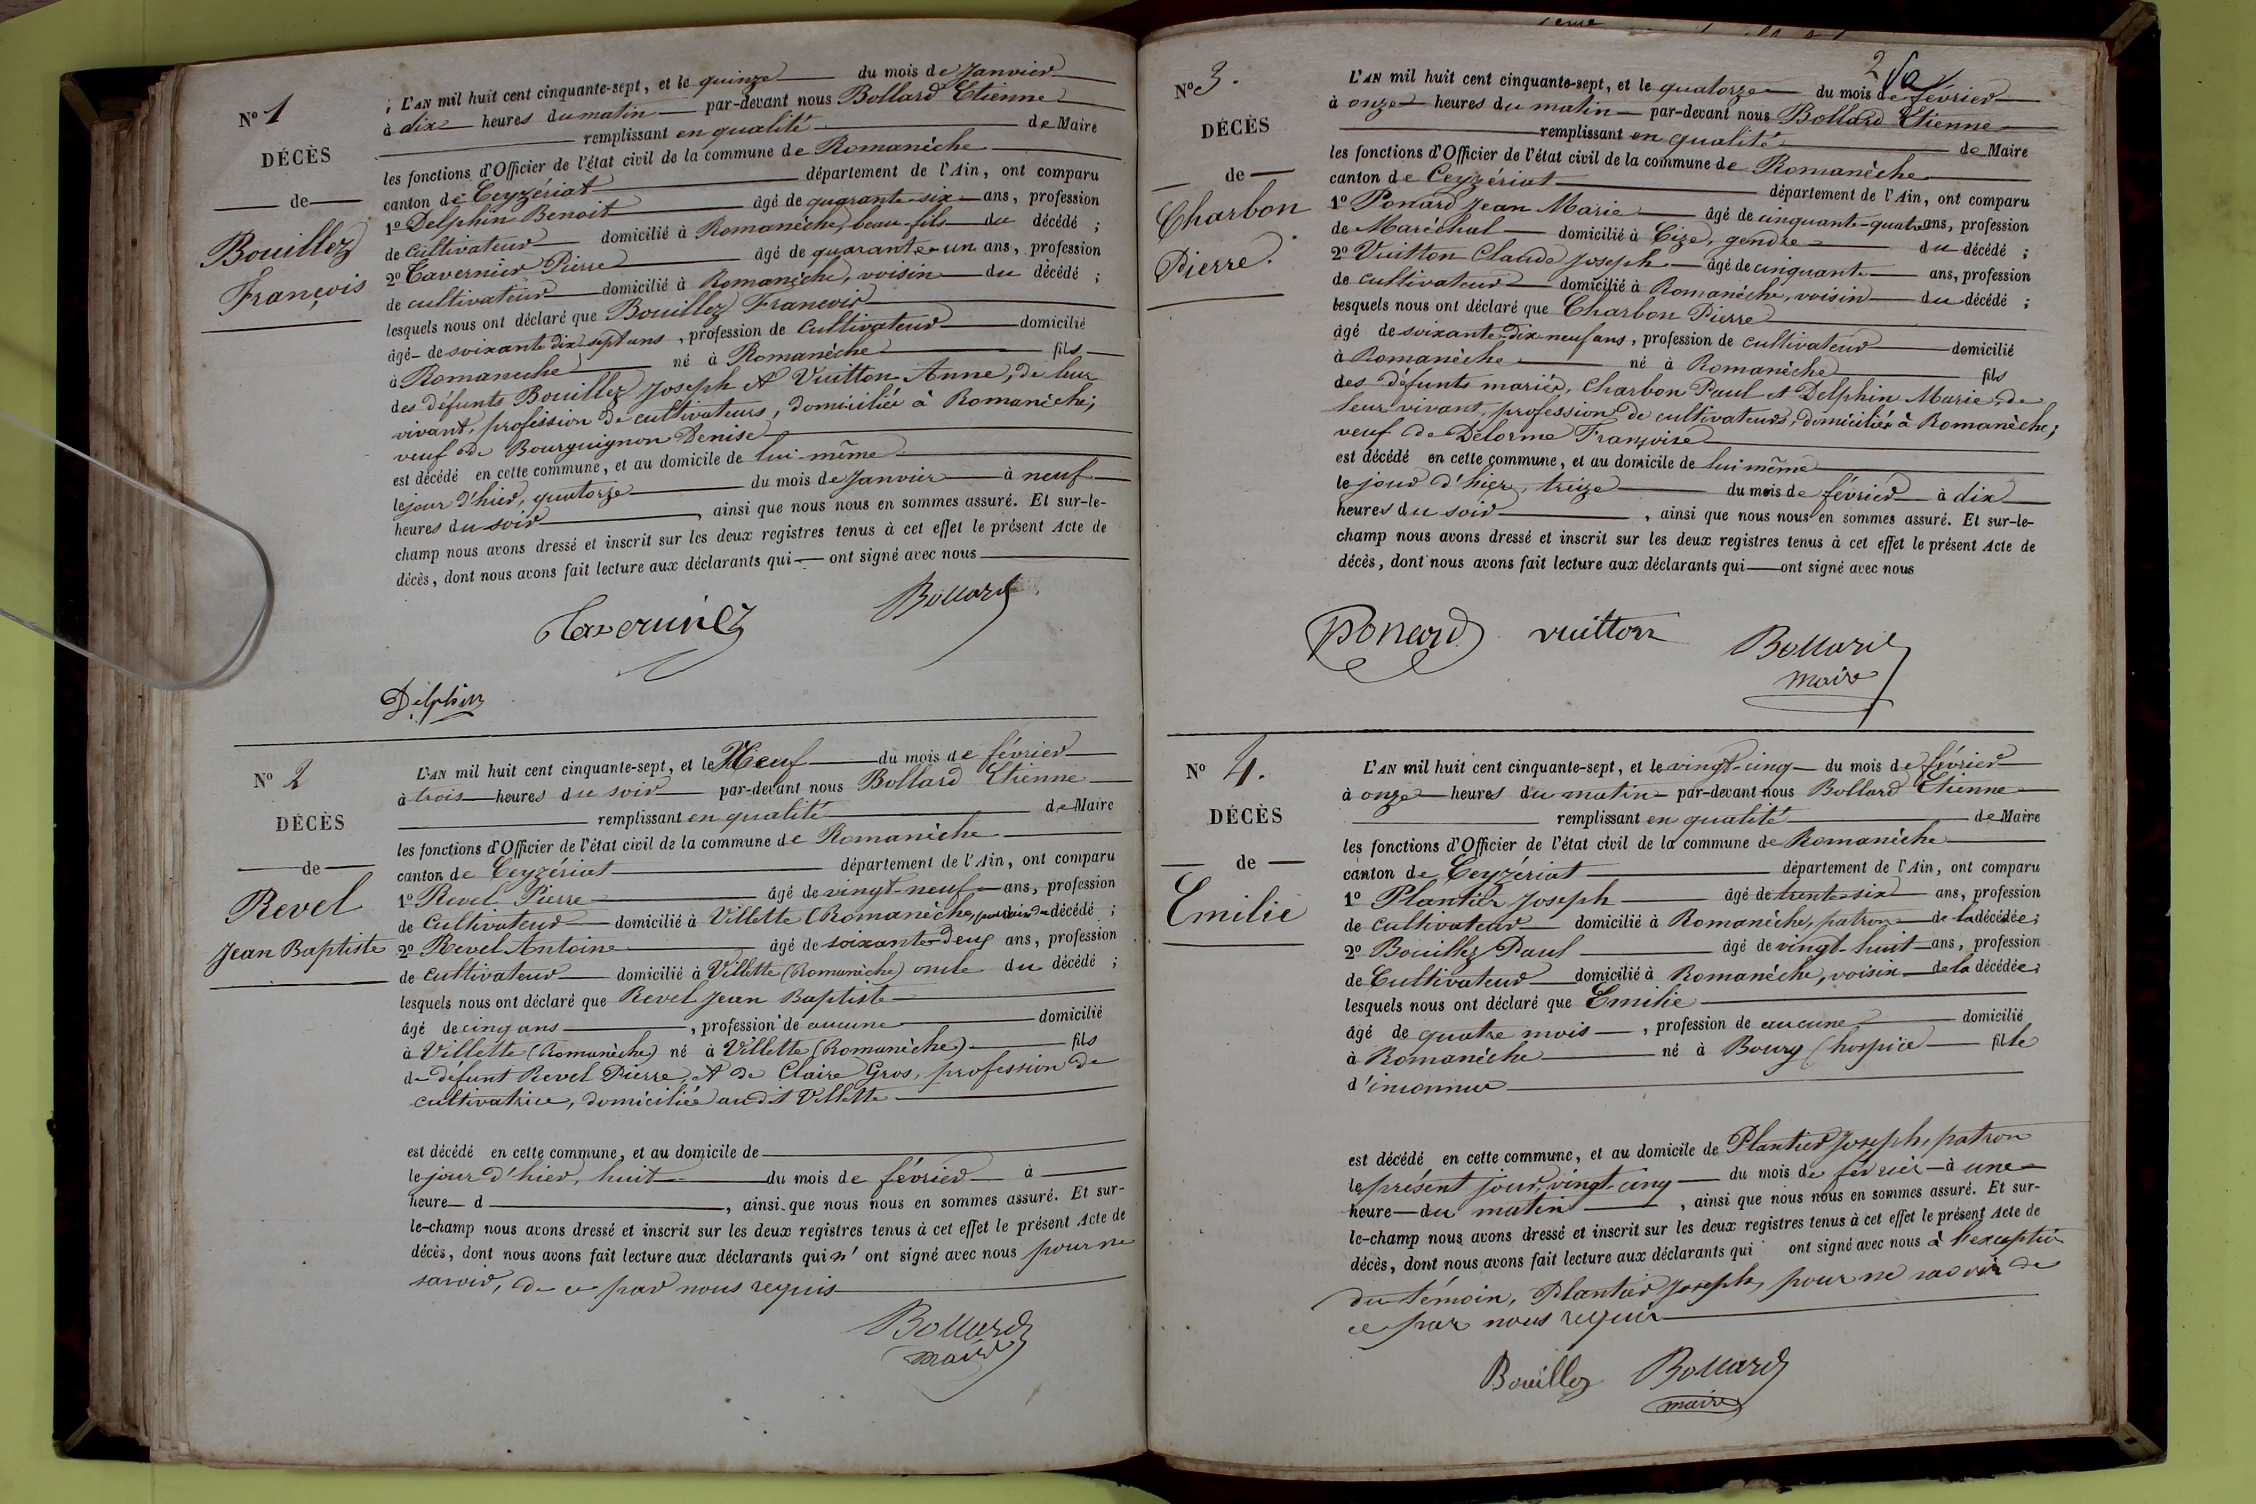 N° 1
DÉCÈS
de
Bouillez
François
L'AN mil huit cent cinquante-sept, et le quinze du mois de Janvier
à dix heures du matin par-devant nous Bollard Etienne
remplissant en qualité de Maire
les fonctions d'Officier de l'état civil de la commune de Romanèche
canton de Ceyzériat département de l'Ain, ont comparu
1° Delphin Benoit âgé de quarante-six ans, profession
de Cultivateur domicilié à Romanèche, beau-fils du décédé ;
2° Tavernier Pierre âgé de quarante-un ans, profession
de cultivateur domicilié à Romanèche, voisin du décédé ;
lesquels nous ont déclaré que Bouillez François
âgé de soixante dix-sept ans, profession de Cultivateur domicilié
à Romaneche né à Romanèche fils
des défunts Bouillez Joseph et Vuitton Anne, de leur
vivant, profession de cultivateurs, domiciliés à Romanèche;
veuf de Bourguignon Denise
est décédé en cette commune, et au domicile de lui-même
le jour d'hier, quatorze du mois de Janvier à neuf
heures du soir, ainsi que nous nous en sommes assuré. Et sur-le-
champ nous avons dressé et inscrit sur les deux registres tenus à cet effet le présent Acte de
décès, dont nous avons fait lecture aux déclarants qui ont signé avec nous
Tavernier Bollard
Delphin
N° 2
DÉCÈS
de
Revel
Jean Baptiste
L'AN mil huit cent cinquante-sept, et le Neuf du mois de février
à trois heures du soir par-devant nous Bollard Etienne
remplissant en qualité de Maire
les fonctions d'Officier de l'état civil de la commune de Romanèche
canton de Ceyzériat département de l'Ain, ont comparu
1° Revel Pierre âgé de vingt-neuf ans, profession
de Cultivateur domicilié à Villette (Romanèche, du décédé ;
2° Revel Antoine âgé de soixante-deux ans, profession
de cultivateur domicilié à Villette (Romanèche) oncle du décédé ;
lesquels nous ont déclaré que Revel Jean Baptiste
âgé de cinq ans, profession de aucune domicilié
à Villette (Romanèche) né à Villette (Romanèche) fils
de défunt Revel Pierre, et de Claire Gros, profession de
cultivatrice, domiciliée audit Villette
est décédé en cette commune, et au domicile de
le jour d'hier, huit du mois de février à
heure d , ainsi que nous nous en sommes assuré. Et sur-
le-champ nous avons dressé et inscrit sur les deux registres tenus à cet effet le présent Acte de
décès, dont nous avons fait lecture aux déclarants qui n'ont signé avec nous pour ne
savoir, de ce par nous requis
Bollard
maire
2
N° 3.
DÉCÈS
de
Charbon
Pierre.
L'AN mil huit cent cinquante-sept, et le quatorze du mois de février
à onze heures du matin par-devant nous Bollard Etienne
remplissant en qualité de Maire
les fonctions d'Officier de l'état civil de la commune de Romanèche
canton de Ceyzériat département de l'Ain, ont comparu
1° Ponard Jean Marie âgé de cinquante-quatre ans, profession
de Maréchal domicilié à Cize, gendre du décédé ;
2° Vuitton Claude Joseph âgé de cinquante ans, profession
de cultivateur domicilié à Romanèche, voisin du décédé ;
lesquels nous ont déclaré que Charbon Pierre
âgé de soixante-dix-neuf ans, profession de cultivateur domicilié
à Romanèche né à Romanèche fils
des défunts mariés, Charbon Paul et Delphin Marie, de
leur vivant, profession de cultivateurs, domiciliés à Romanèche;
veuf de Delorme Françoise
est décédé en cette commune, et au domicile de lui même
le jour d'hier, treize du mois de février à dix
heures du soir, ainsi que nous nous en sommes assuré. Et sur-le-
champ nous avons dressé et inscrit sur les deux registres tenus à cet effet le présent Acte de
décès, dont nous avons fait lecture aux déclarants qui ont signé avec nous
Ponard vuitton Bollard
maire
N° 4.
DÉCÈS
de
Emilie
L'AN mil huit cent cinquante-sept, et le vingt-cinq du mois de février
à onze heures du matin par-devant nous Bollard Etienne
remplissant en qualité de Maire
les fonctions d'Officier de l'état civil de la commune de Romanèche
canton de Ceyzériat département de l'Ain, ont comparu
1° Plantier Joseph âgé de trente-six ans, profession
de cultivateur domicilié à Romanèche, patron de la décédée;
2° Bouillez Paul âgé de vingt-huit ans, profession
de Cultivateur domicilié à Romanèche, voisin de la décédée;
lesquels nous ont déclaré que Emilie
âgé de quatre mois, profession de aucune domicilié
à Romanèche né à Bourg (hospice fille
d'inconnus
est décédé en cette commune, et au domicile de Plantier Joseph, patron
le présent jour, vingt-cinq du mois de février à une
heure du matin, ainsi que nous nous en sommes assuré. Et sur-
le-champ nous avons dressé et inscrit sur les deux registres tenus à cet effet le présent Acte de
décès, dont nous avons fait lecture aux déclarants qui ont signé avec nous à l'exception
du témoin, Plantier Joseph, pour ne savoir de
ce par nous requis
Bouillez Bollard
maire